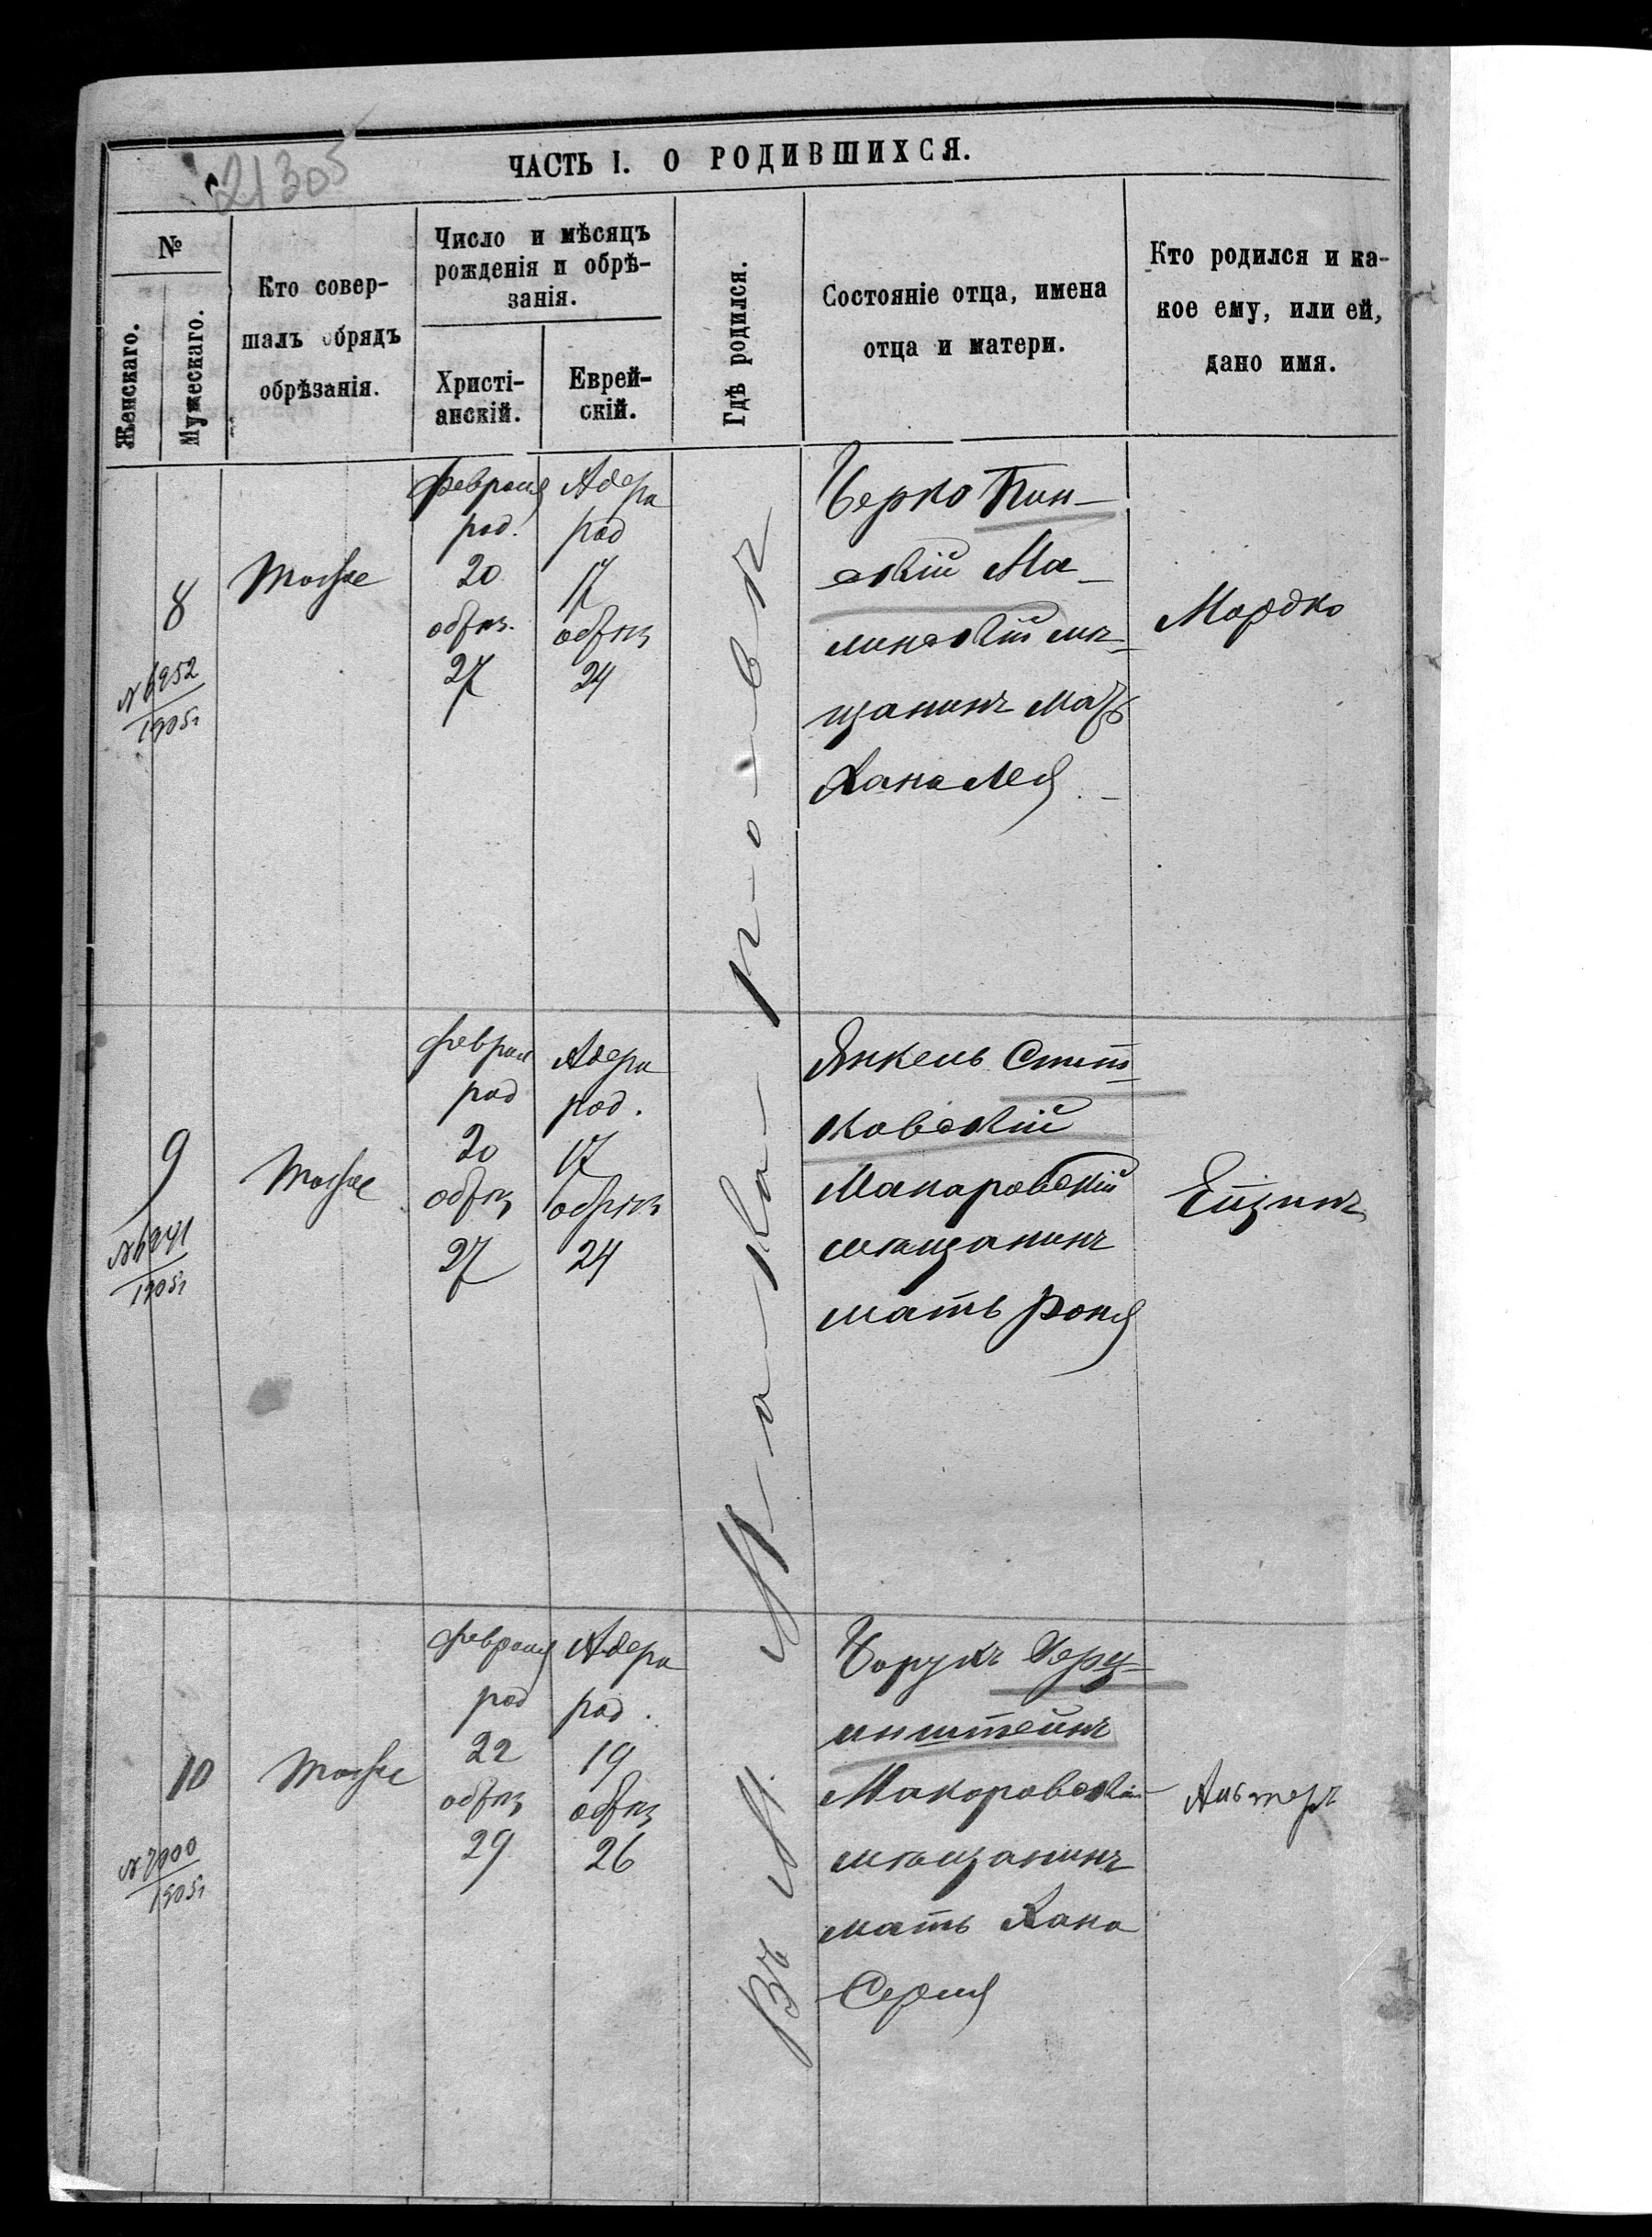 21305
ЧАСТЬ I. О РОДИВШИХСЯ.
№
Женскаго.
Мужескаго.
Кто совер-
шалъ обрядъ
обрѣзанія.
Число и мѣсяцъ
рожденія и обрѣ-
занія.
Христі-
анскій.
Еврей-
скій.
Гдѣ родился.
Состояніе отца, имена
отца и матери.
Кто родился и ка-
кое ему, или ей,
дано имя.
8
№ 6952
1905г
Мошке
февраля
род.
20
обрѣз.
27
Адера
род
17
обрѣз
24
Въ М. Макаровѣ
Берко Пин-
скій Ма-
линскій мѣ-
щанинъ мать
Хана Лея
Мордко
9
1905г
Мошке
феврал
род
20
обрѣз
27
Адера
род.
17
обрѣз
24
Янкель Снит-
ковскій
Макаровскій
мѣщанинъ
мать Роня
10
№ 7900
1905г
Мошке
февраля
род
22
обрѣз
29
Адера
род.
19
обрѣз
26
Борухъ
Макоровскій
мѣщанинъ
мать Хана
Серля
Альтеръ